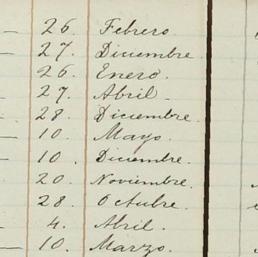 26. Febrero.
27. Diciembre.
26. Enero.
27. Abril.
28. Diciembre.
10. Mayo.
10. Diciembre.
20. Noviembre.
28. Octubre.
4. Abril.
10. Marzo.